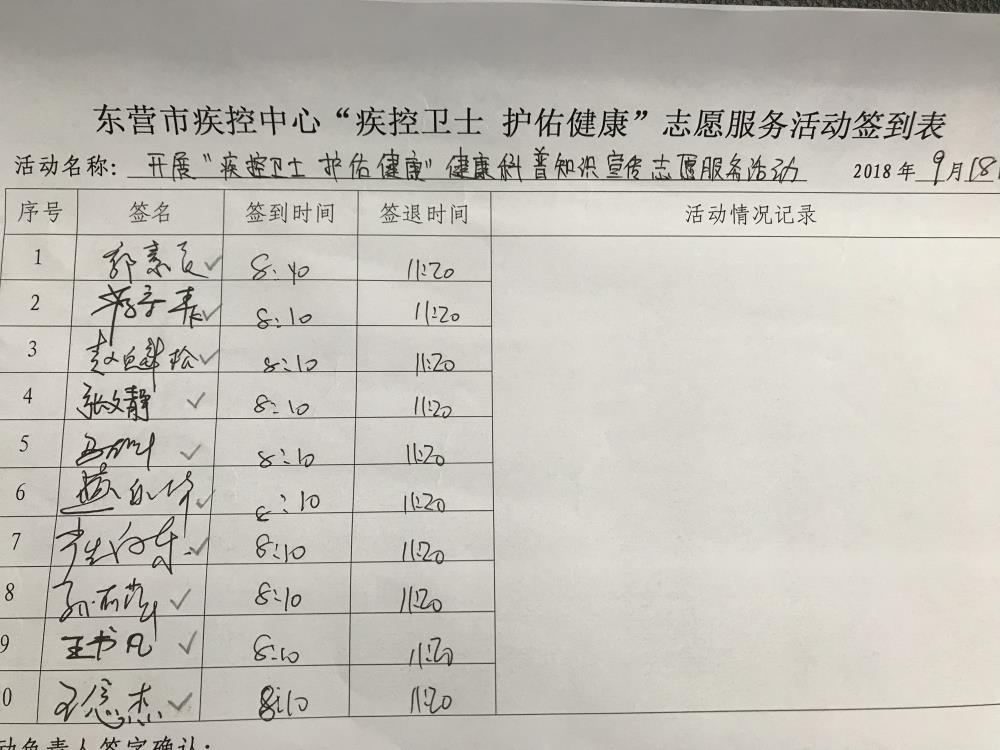 东营市疾控中心“疾控卫士 护佑健康”志愿服务活动签到表
活动名称: 开展“疾控卫士 护佑健康”健康科普知识宣传志愿服务活动 2018年9月18
序号 签名 签到时间 签退时间 活动情况记录
1 ✓ 8:40 11:20
2 ✓ 8:10 11:20
3 ✓ 8:10 11:20
4 张文静 ✓ 8:10 11:20
5 ✓ 8:10 11:20
6 ✓ 8:10 11:20
7 ✓ 8:10 11:20
8 ✓ 8:10 11:20
9 王书凡 ✓ 8:10 11:20
0 ✓ 8:10 11:20
动负责人签字确认: